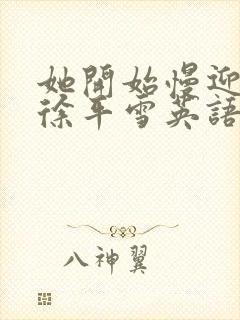 她開始慢迎
徐平雪英語
八神翼